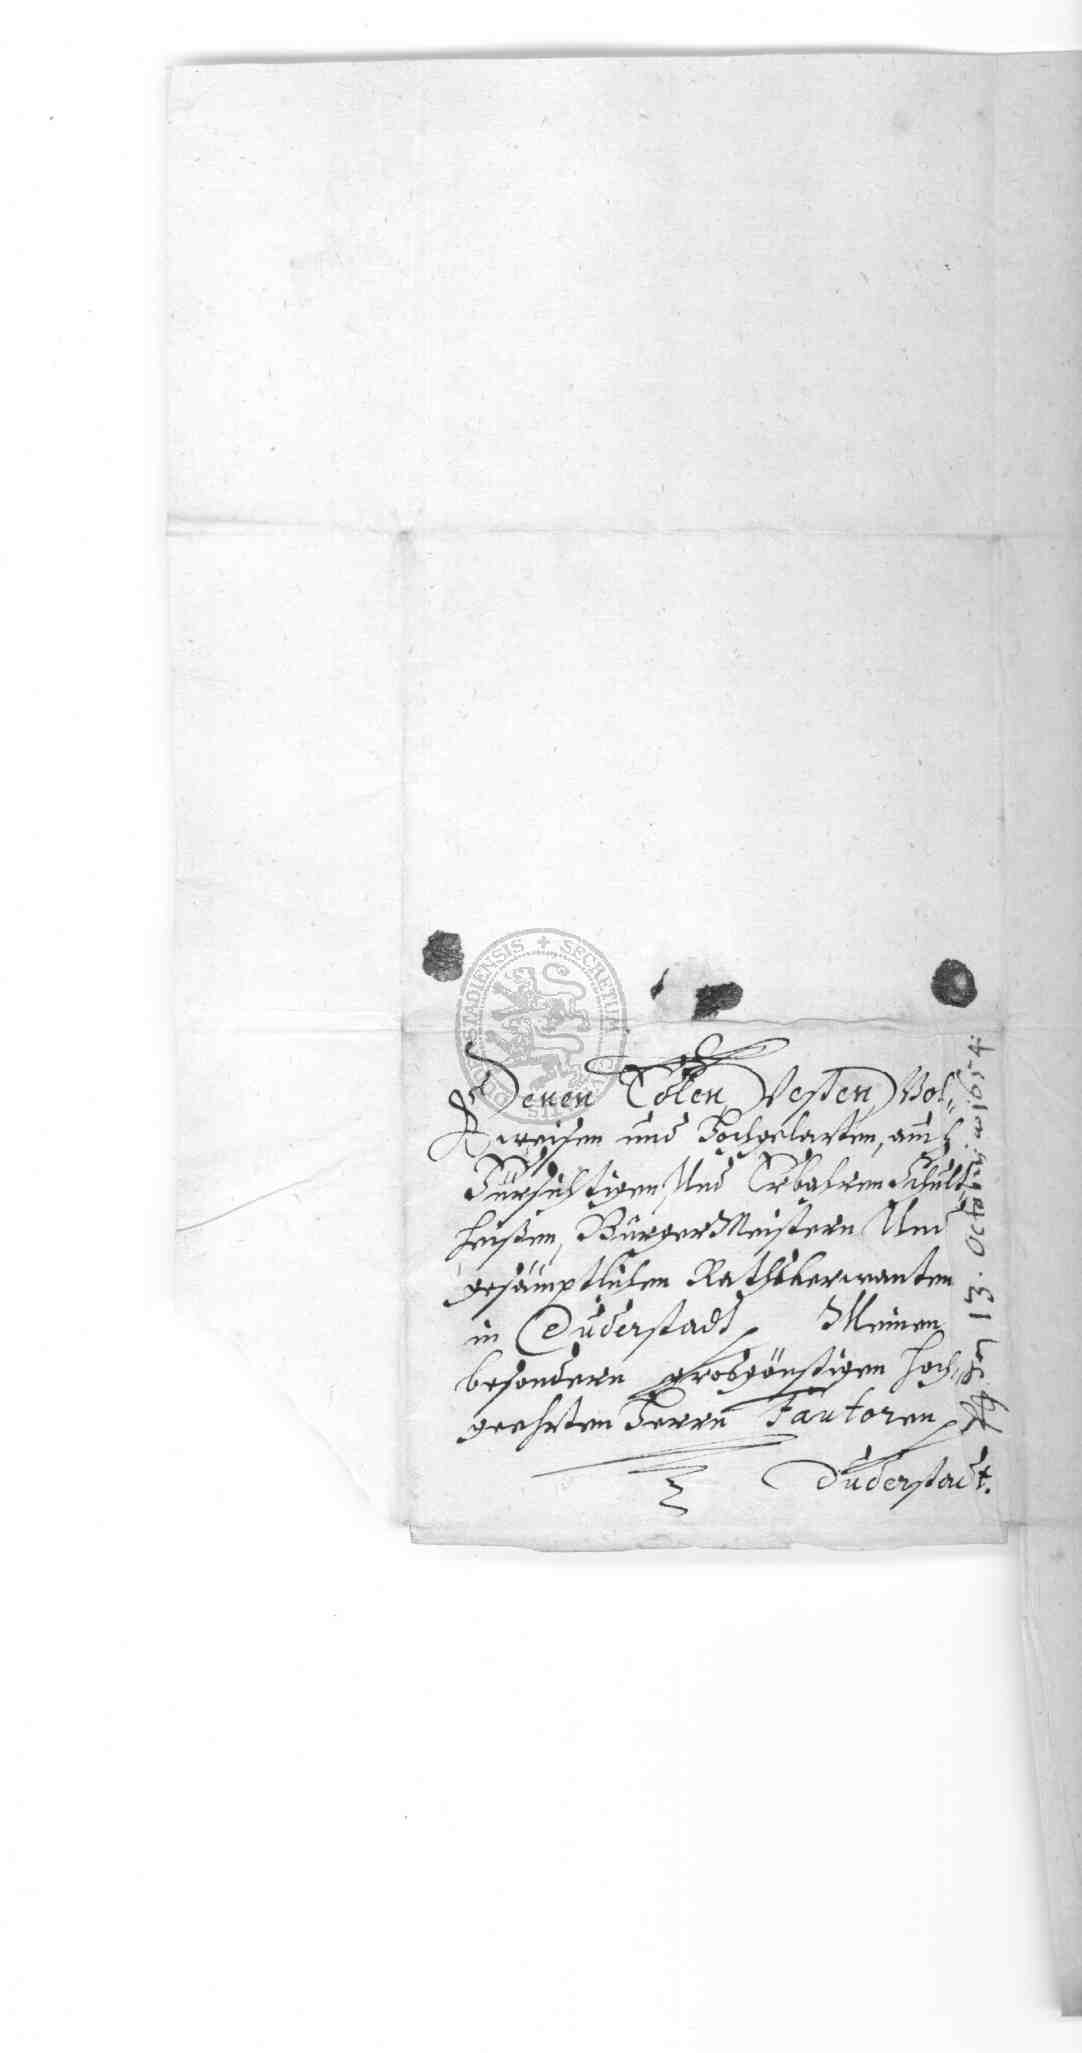 Denen Edlen, Vesten, Wol-
weisen und Hochgelarten, auch
Fürsichtigen Und Erbahren Schult-
heißen, BürgerMeistern Und
gesämptlichen Rathsverwanten
in Duderstadt, Meinen
besondern grosgönstigen hoch-
geehrten Herrn Fautoren
Duderstadt.
13. Octobris 1654.
SECRETUM